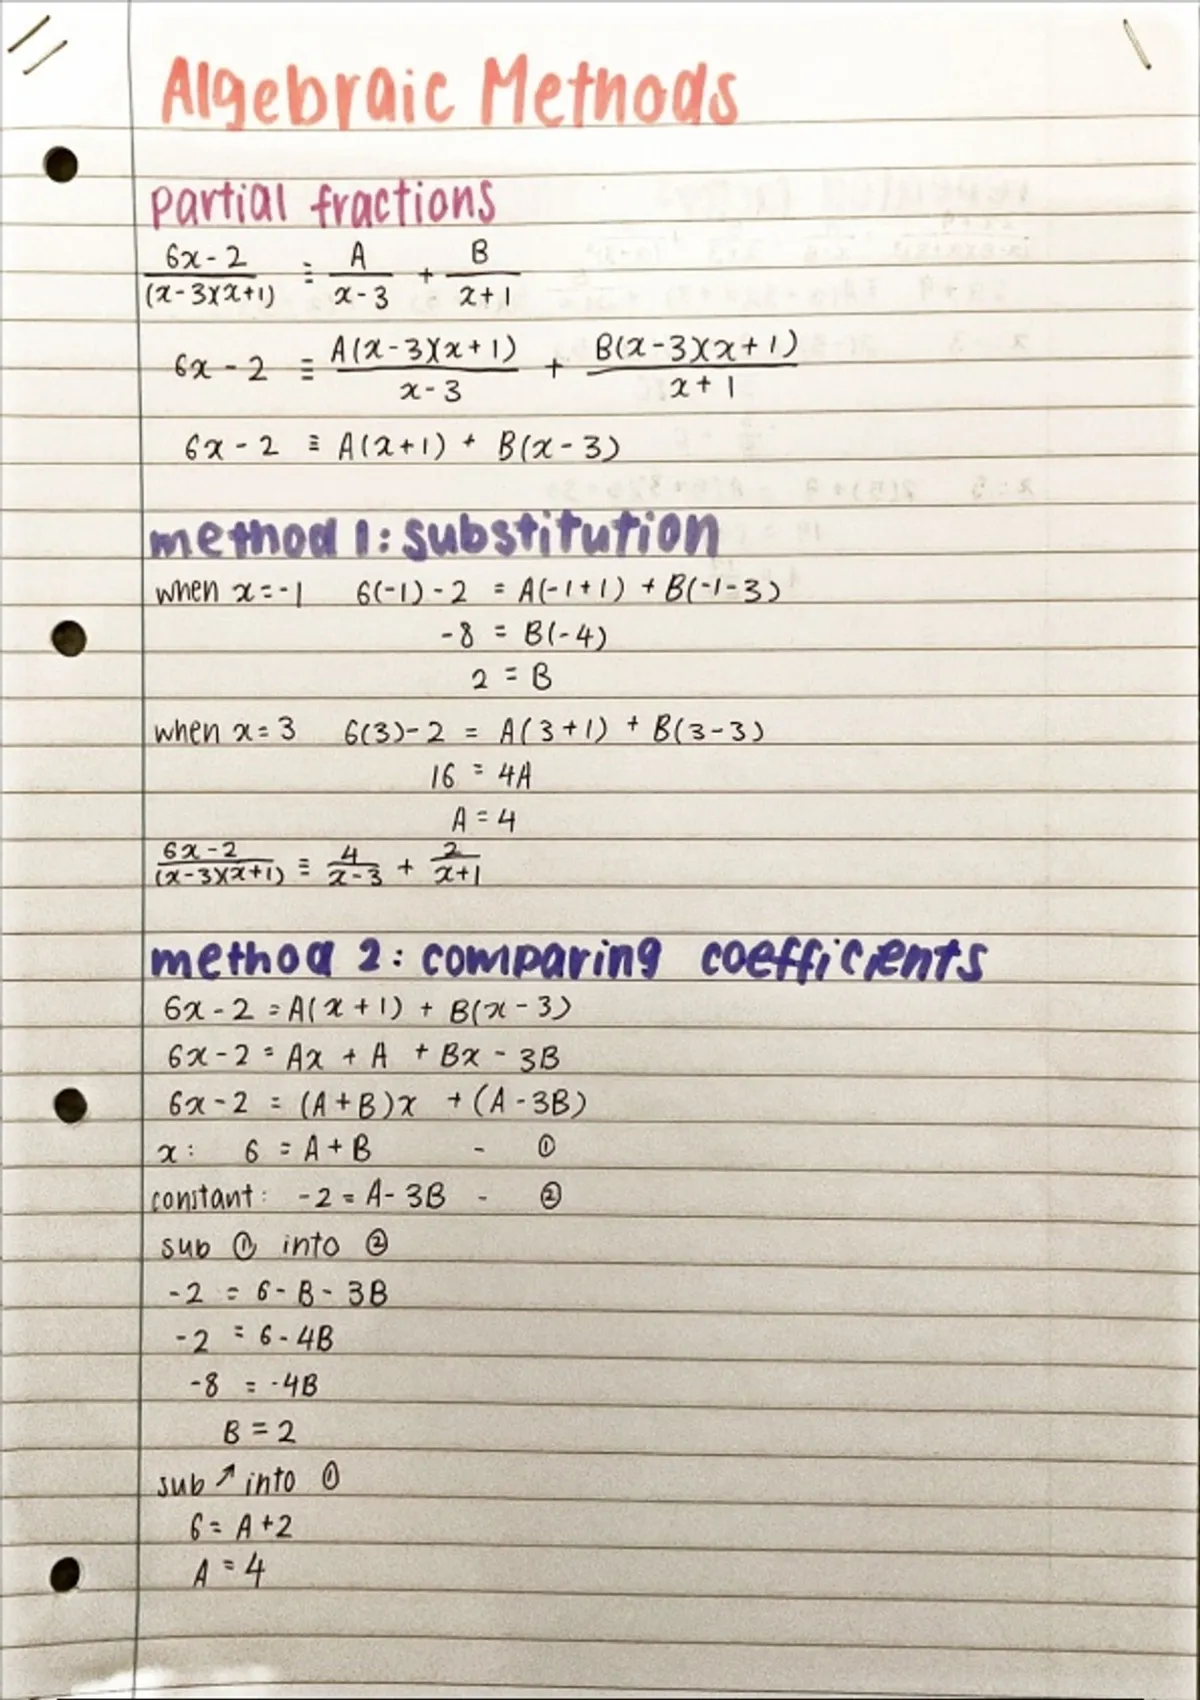 Algebraic Methods
partial fractions
6x - 2 / (x-3)(x+1) ≡ A / x-3 + B / x+1
6x - 2 ≡ A(x-3)(x+1) / x-3 + B(x-3)(x+1) / x+1
6x - 2 ≡ A(x+1) + B(x-3)
method 1: substitution
when x=-1 6(-1)-2 = A(-1+1) + B(-1-3)
-8 = B(-4)
2 = B
when x=3 6(3)-2 = A(3+1) + B(3-3)
16 = 4A
A = 4
6x-2 / (x-3)(x+1) ≡ 4 / x-3 + 2 / x+1
method 2: comparing coefficients
6x-2 = A(x+1) + B(x-3)
6x-2 = Ax + A + Bx - 3B
6x-2 = (A+B)x + (A-3B)
x: 6 = A+B - ①
constant: -2 = A-3B - ②
sub ① into ②
-2 = 6-B-3B
-2 = 6-4B
-8 = -4B
B = 2
sub ↗ into ①
6 = A+2
A = 4